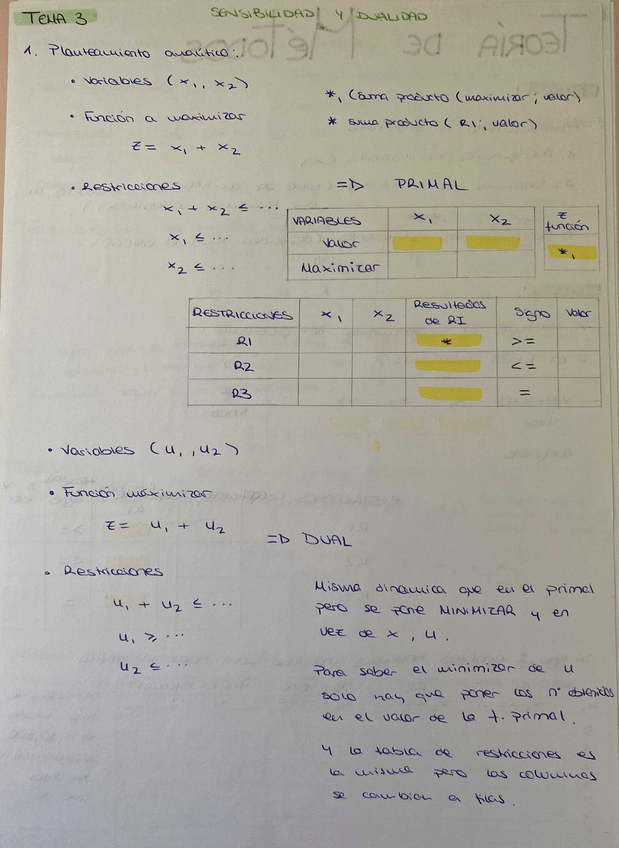 TEMA 3
SENSIBILIDAD Y DUALIDAD
1. Planteamiento analítico:
• Variables (x1, x2)
• Función a maximizar
Z = x1 + x2
*1 (Suma producto (maximizar; valor)
* suma producto (R1; valor)
• Restricciones
x1 + x2 ≤ ...
x1 ≤ ...
x2 ≤ ...
=> PRIMAL
VARIABLES x1 x2
Valor
Maximizar
Z función
*1
RESTRICCIONES x1 x2 Resultados de RI Signo Valor
R1 * >=
R2 <=
R3 =
• Variables (u1, u2)
• Función maximizar
Z = u1 + u2
=> DUAL
• Restricciones
u1 + u2 ≤ ...
u1 ≥ ...
u2 ≤ ...
Misma dinamica que en el primal
pero se pone MINIMIZAR y en
vez de x, u.
Para saber el minimizar de u
solo hay que poner los nº obtenidos
en el valor de la t. primal.
Y la tabla de restricciones es
la misma pero las columnas
se cambian a filas.